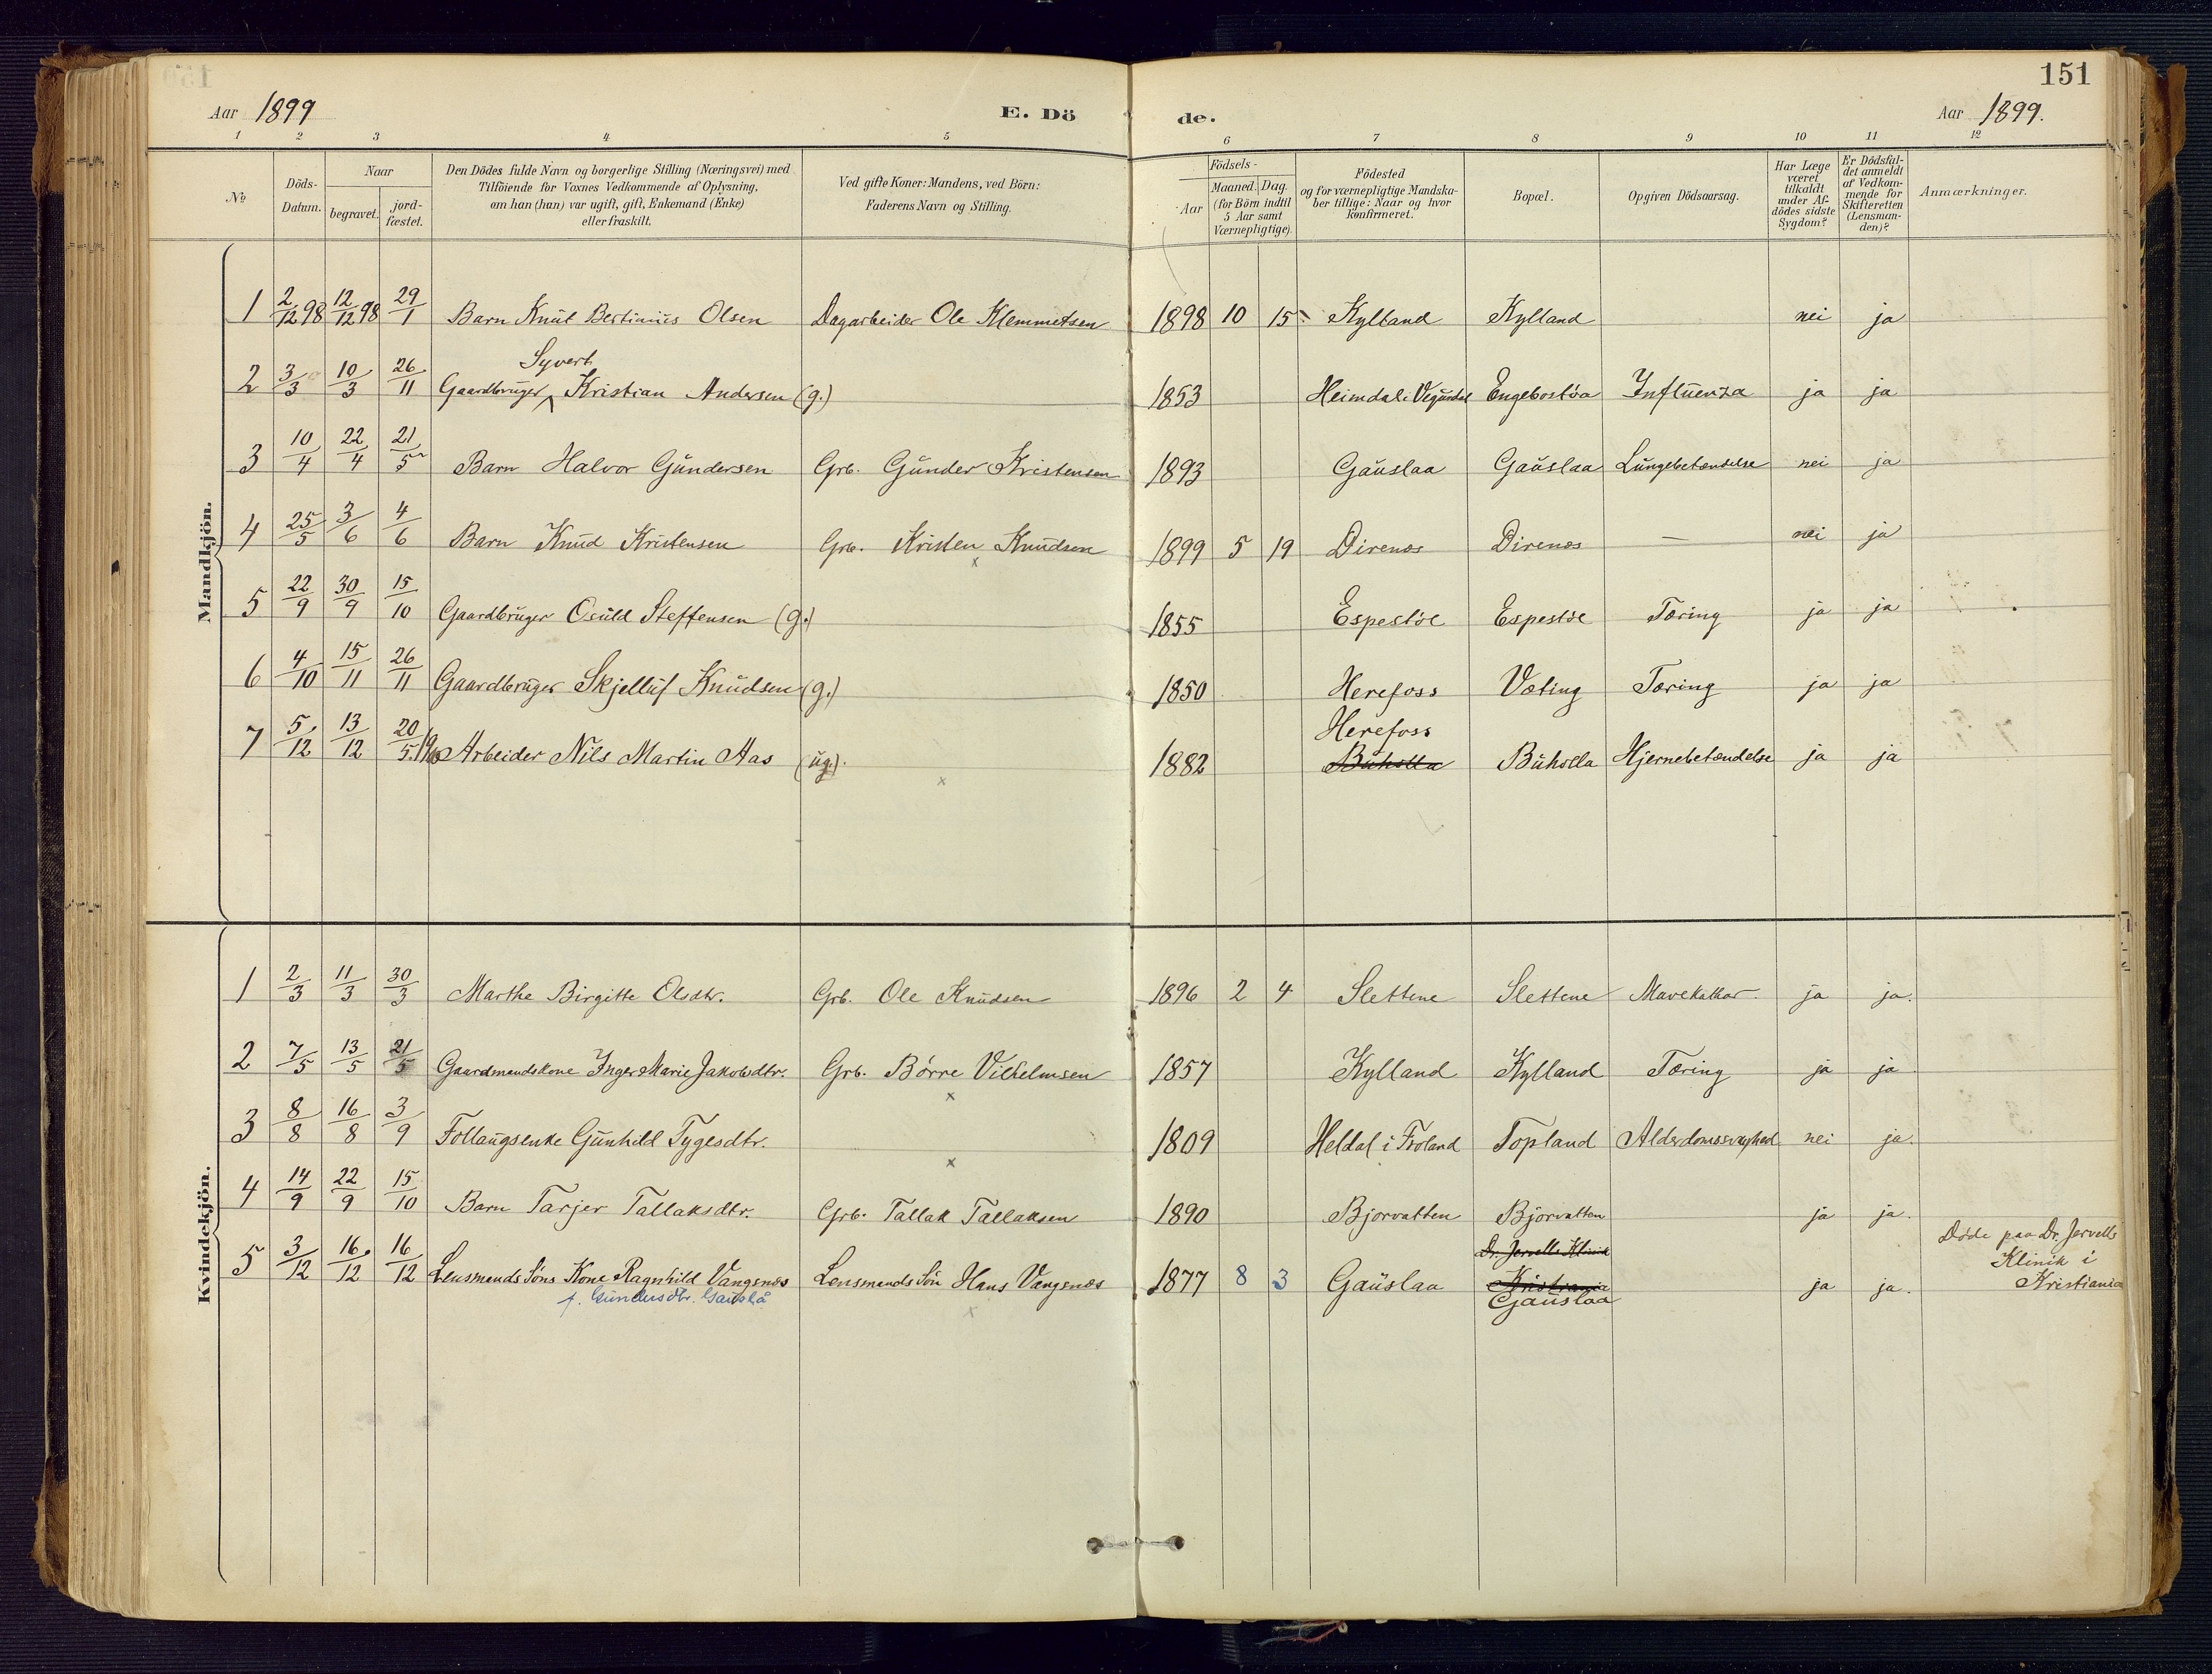 151
Aar 1899
E. Dö
de.
Aar 1899.
1 2 3 4 5 6 7 8 9 10 11 12
No
Döds-
Datum.
Naar
begravet.
jord-
fæstet.
Den Dödes fulde Navn og borgerlige Stilling (Næringsvei) med
Tilföiende for Voxnes Vedkommende af Oplysning,
om han (hun) var ugift, gift, Enkemand (Enke)
eller fraskilt.
Ved gifte Koner: Mandens, ved Börn:
Faderens Navn og Stilling.
Födsels-
Aar
Maaned. Dag.
(for Börn indtil
5 Aar samt
Værnepligtige).
Födested
og for værnepligtige Mandska-
ber tillige: Naar og hvor
konfirmeret.
Bopæl.
Opgiven Dödsaarsag.
Har Læge
været
tilkaldt
under Af-
dödes sidste
Sygdom?
Er Dödsfal-
det anmeldt
af Vedkom-
mende for
Skifteretten
(Lensman-
den)?
Anmærkninger.
Mandkjön.
1 2/12 98 12/12 98 29/1 Barn Knut Bertinius Olsen Dagarbeider Ole Klemmetsen 1898 10 15 Kylland Kylland nei ja
Syvert
2 3/3 10/3 26/11 Gaardbruger Kristian Andersen (g.) 1853 Heimdal i Vegusdal Engebostøa Influenza ja ja
3 10/4 22/4 21/5 Barn Halvor Gundersen Grb. Gunder Kristensen 1893 Gauslaa Gauslaa Lungebetændelse nei ja
4 25/5 3/6 4/6 Barn Knud Kristensen Grb. Kristen Knudsen 1899 5 19 Direnes Direnes — nei ja
5 22/9 30/9 15/10 Gaardbruger Osuld Steffensen (g.) 1855 Espestøe Espestøe Tæring ja ja
6 4/10 15/11 26/11 Gaardbruger Skjelluf Knudsen (g.) 1850 Herefoss Væting Tæring ja ja
Herefoss
7 5/12 13/12 20/5.19 Arbeider Nils Martin Aas (ug). 1882 Buholla Buholla Hjernebetændelse ja ja
Kvindekjön.
1 2/3 11/3 30/3 Marthe Birgitte Olsdtr. Grb. Ole Knudsen 1896 2 4 Slettene Slettene Mavekathar. ja ja.
2 7/5 13/5 21/5 Gaardmandskone Inger Marie Jakobsdtr. Grb. Børre Vilhelmsen 1857 Kylland Kylland Tæring ja ja
3 8/8 16/8 3/9 Follaugsenke Gunhild Tygesdtr. 1809 Heldal i Froland Topland Alderdomssvaghed nei ja.
4 14/9 22/9 15/10 Barn Tarjer Tallaksdtr. Grb. Tallak Tallaksen 1890 Bjorvatten Bjorvatten ja ja.
Dr. Jervells Klinik
5 3/12 16/12 16/12 Lensmands Søns Kone Ragnhild Vangsnes Lensmands Søn Hans Vangsnes 1877 8 3 Gauslaa Kristiania ja ja.
f. Gundersdtr. Gauslå
Gauslaa
Døde paa Dr. Jervells
Klinik i
Kristiania